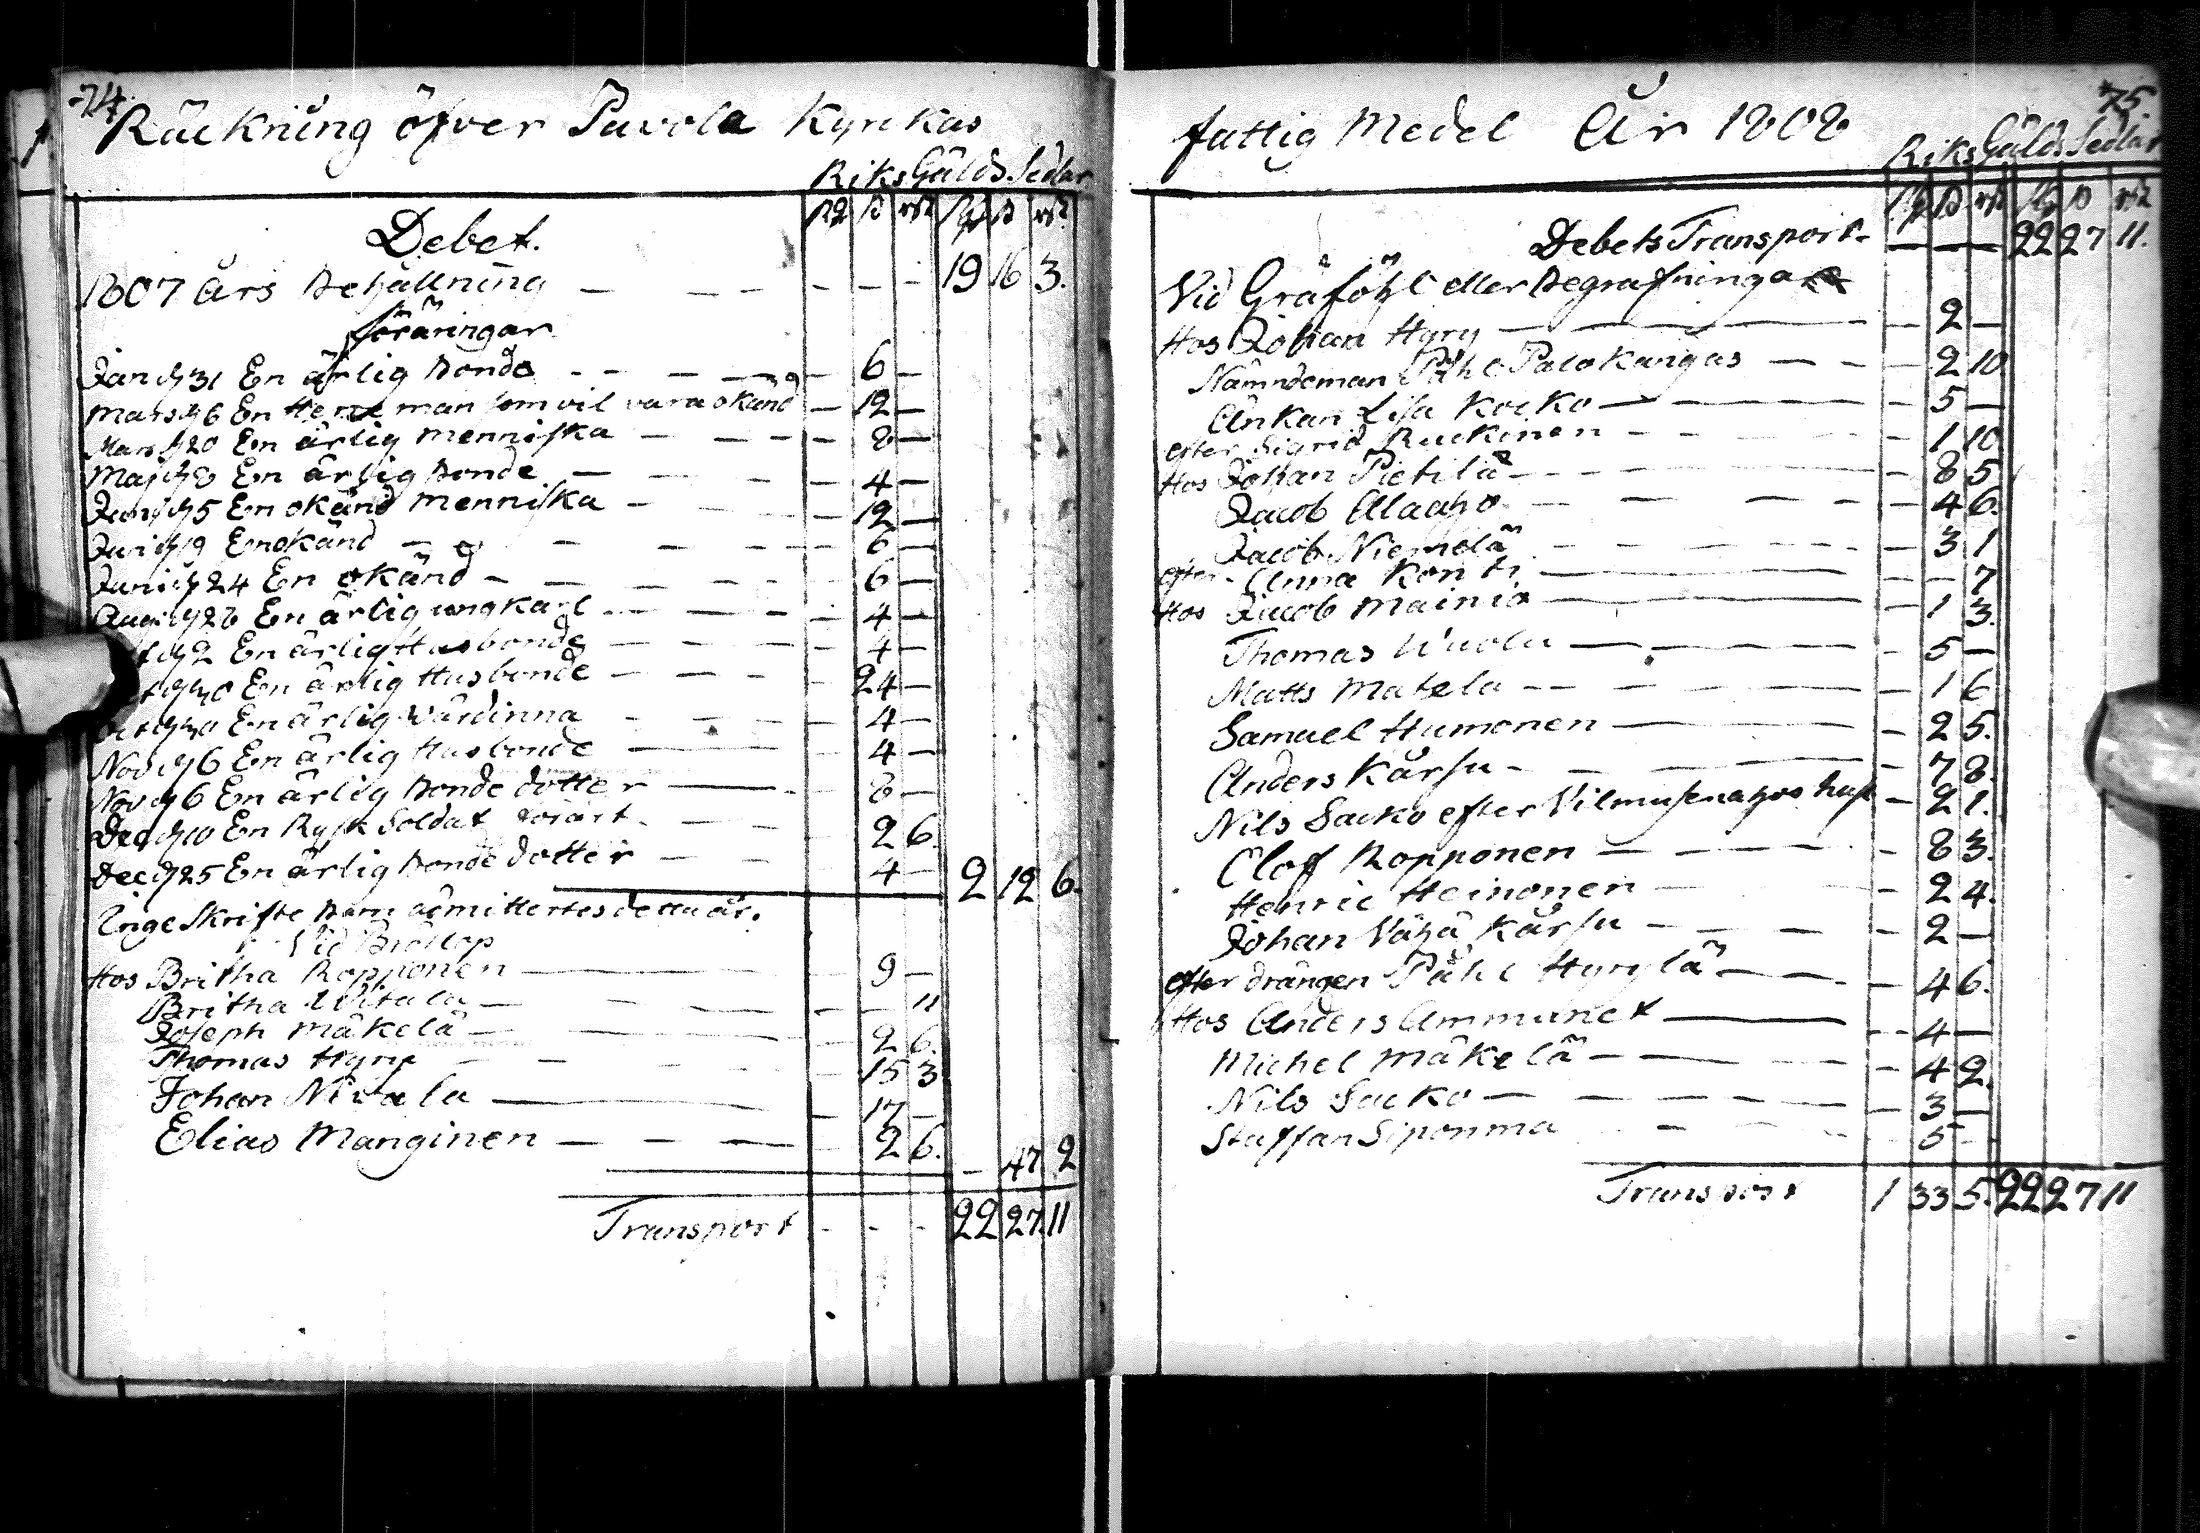 74.
Räckning öfver Pavola Kyrckas
Riks Gälds Sedlar
Rd ß rst Rd ß rst
Debet.
1807 Års Behållning — — — - - - 19 16 3.
föräringar
Jan d 31 En ärlig bonde - - - — — 6 —
Mars d 6 En Herre man som vil vara okänd — 12 —
Mars d 20 En ärlig menniska — — — 8 —
Maj d 8 En ärlig bonde — — — 4 —
Junj d 5 En okänd menniska — — — 12 —
Juni d 9 En okänd — — — — 6 —
Juni d 24 En okänd — — — — 6 —
Aug d 28 En ärlig ungkarl — — — 4 —
d 2 En ärlig Husbonde 4 —
d 30 En ärlig Husbonde — — — 24 —
d 30 En ärlig Värdinna — — — 4 —
Nov d 6 En ärlig Husbonde — — 4 —
Nov d 6 En ärlig bonde dotter — 8 —
Dec d 10 En Rysk Soldat förärt — — 2 6.
Dec d 25 En ärlig bonde dotter — — 4 — 2 12 6.
Inge Skrifte barn admittertes detta år.
Vid Bröllop
Hos Britha Ropponen — — 9 —
Britha Uhtala — — — 11
Joseph Mäkelä — — 2 6.
Thomas Hyry — — 15 3
Johan Nivala — — 17 —
Elias Manginen — — — 2 6. — 47 2
Transport - - - 22 27. 11
fattig Medel År 1808
75.
Riks Gälds Sedlar
Rd ß rst Rd ß rst
Debets Transport - — — 22 27 11.
Vid Gräföhl eller Begrafningar
Hos Johan Hyry — — — 2 —
Nämndeman Påhl Palokangas — — 2 10
Änkan Lisa Kocko — — 5 —
efter Sigrid Ruckinen — — 1 10
Hos Johan Pietilä — — 8 5
Jacob Ellaaho — — — 4 6.
Jacob Niemelä — — 3 1
efter Anna Konti — — — 7
Hos Jacob Mainio — — 1 3.
Thomas Wuolu — — 5 —
Matts Matela — — — 1 6
Samuel Humonen — — 2 5.
Anders Kärsu — — — 7 8.
Nils Sacko efter — 2 1.
Olof Ropponen — — 8 3.
Henric Heinonen — — 2 4.
Johan Vähä Kärsu — — 2 —
efter drängen Påhl Hyrylä — — 4 6.
Hos Anders Ammunet — — 4 —
Michel Mäkelä — — — 4 2.
Nils Sacko — — — 3 —
Staffan Siponma — — 5 -
Transport 1 33 5. 22 27 11